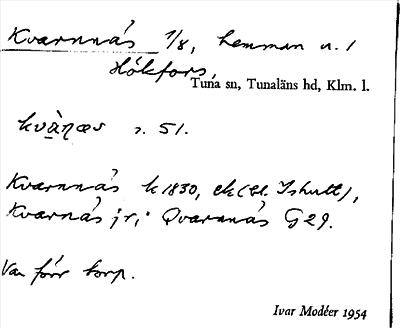 Kvarnnäs 1/8, hemman n. 1
Hökfors,
Tuna sn, Tunaläns hd, Klm. l.
kvà̱ṇæs s. 51.
Kvarnnäs k 1830, ek (bl. Ishult),
Kvarnäs jr,; Qvarnnäs G 29.
Var förr torp.
Ivar Modéer 1954